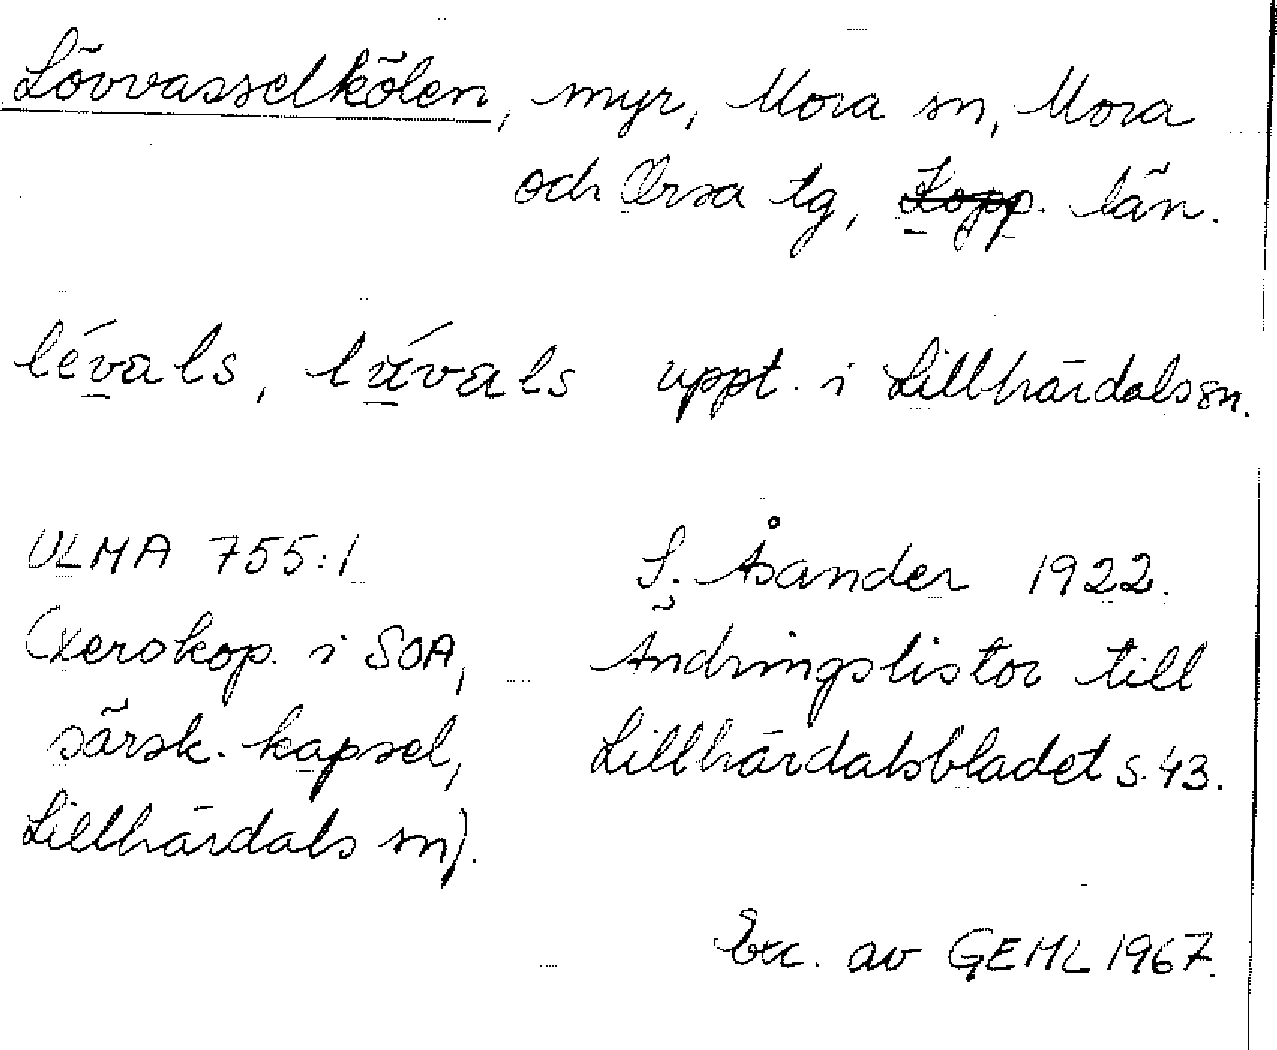 Lövvasselkölen, myr, Mora sn, Mora
och Orsa tg, Kopp. län.
lévals, lǽvals uppt. i Lillhärdals sn.
ULMA 755:1
(xerokop. i SOA,
särsk. kapsel,
Lillhärdals sn).
S. Åsander 1922.
Ändringslistor till
Lillhärdalsbladet s. 43.
Exc. av GEML 1967.